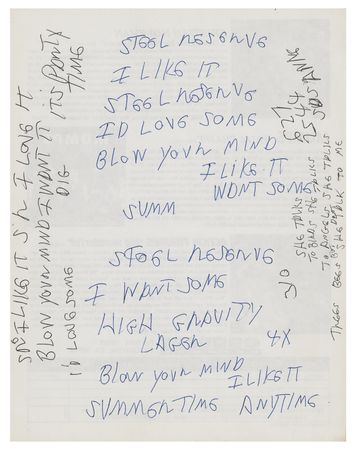 STEEL RESERVE
I LIKE IT
STEEL RESERVE
I'D LOVE SOME
BLOW YOUR MIND
I LIKE IT
WONT SOME
SUMM
STEEL RESERVE
I WANT SOME
HIGH GRAVITY
LAGER 4X
BLOW YOUR MIND
I LIKE IT
SUMMERTIME ANYTIME
I LIKE IT I LOVE IT
BLOW YOUR MIND I WANT IT ITS PARTY
TIME
DIG
I'D LOVE SOME
SHE TALKS
TO BIRDS SHE TALKS
TO ANGELS SHE TALKS
TREES BEES BUT DONT
SHE TALK TO ME